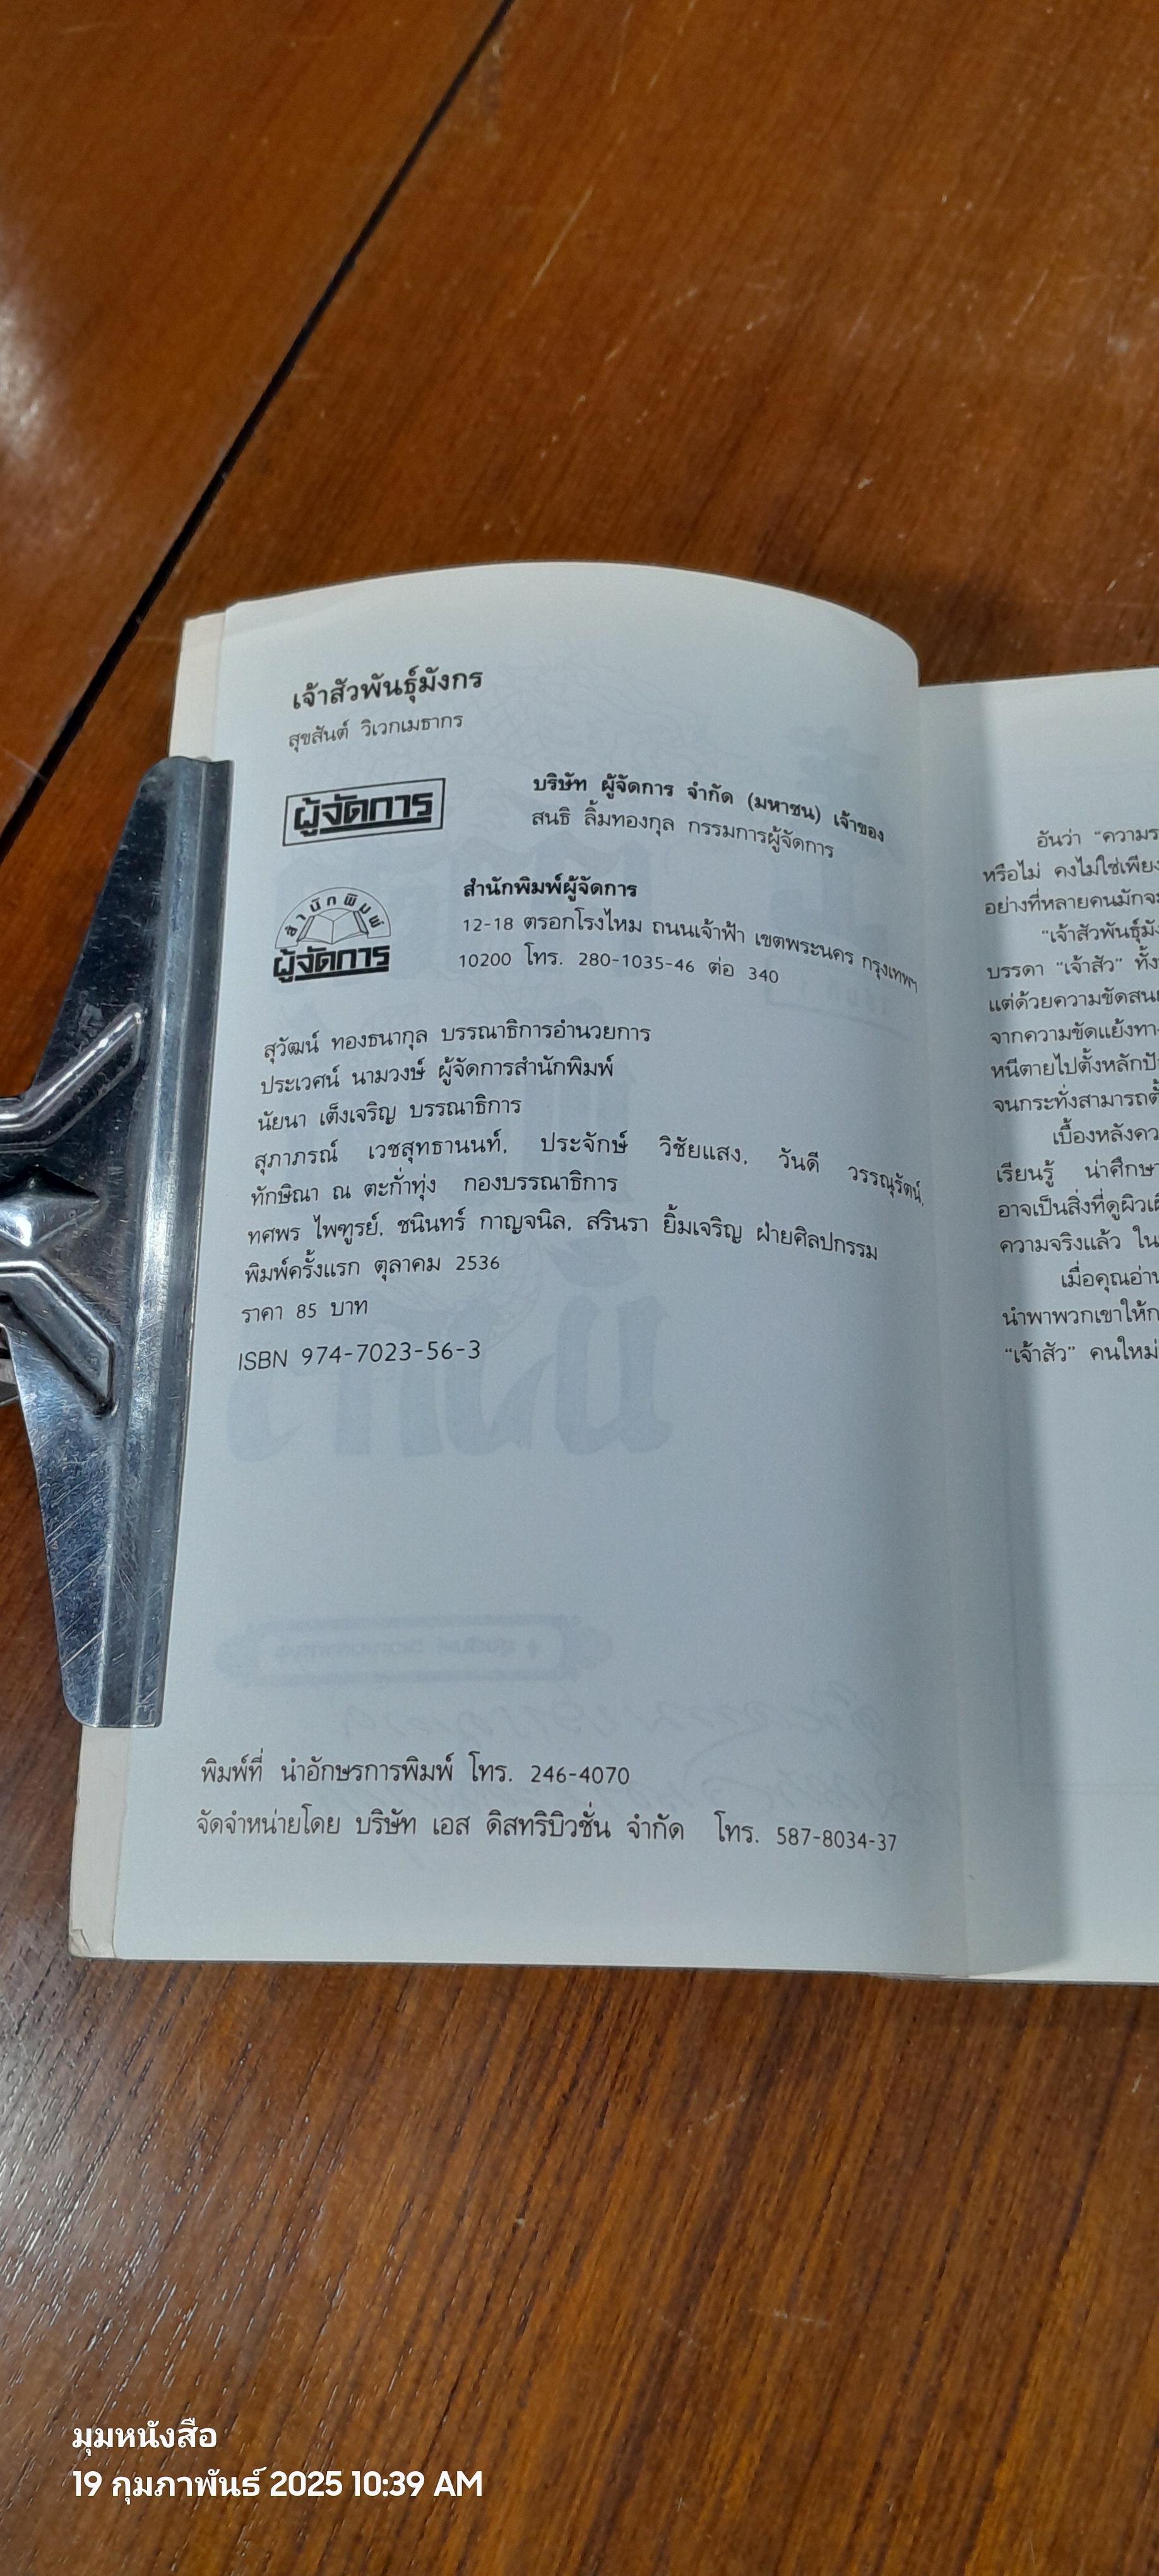 เจ้าสัวพันธุ์มังกร
สุขสันต์ วิเวกเมธากร
ผู้จัดการ
บริษัท ผู้จัดการ จำกัด (มหาชน) เจ้าของ
สนธิ ลิ้มทองกุล กรรมการผู้จัดการ
สำนักพิมพ์
ผู้จัดการ
สำนักพิมพ์ผู้จัดการ
12-18 ตรอกโรงไหม ถนนเจ้าฟ้า เขตพระนคร กรุงเทพฯ
10200 โทร. 280-1035-46 ต่อ 340
สุวัฒน์ ทองธนากุล บรรณาธิการอำนวยการ
ประเวศน์ นามวงษ์ ผู้จัดการสำนักพิมพ์
นัยนา เต็งเจริญ บรรณาธิการ
สุภาภรณ์ เวชสุทธานนท์, ประจักษ์ วิชัยแสง, วันดี วรรณุรัตน์,
ทักษิณา ณ ตะกั่วทุ่ง กองบรรณาธิการ
ทศพร ไพฑูรย์, ชนินทร์ กาญจนิล, สรินรา ยิ้มเจริญ ฝ่ายศิลปกรรม
พิมพ์ครั้งแรก ตุลาคม 2536
ราคา 85 บาท
ISBN 974-7023-56-3
พิมพ์ที่ นำอักษรการพิมพ์ โทร. 246-4070
จัดจำหน่ายโดย บริษัท เอส ดิสทริบิวชั่น จำกัด โทร. 587-8034-37
อันว่า "ความร
หรือไม่ คงไม่ใช่เพียง
อย่างที่หลายคนมักจะ
"เจ้าสัวพันธุ์มัง
บรรดา "เจ้าสัว" ทั้ง
แต่ด้วยความขัดสน
จากความขัดแย้งทาง
หนีตายไปตั้งหลักปั
จนกระทั่งสามารถตั้
เบื้องหลังคว
เรียนรู้ น่าศึกษา
อาจเป็นสิ่งที่ดูผิวเผิ
ความจริงแล้ว ใน
เมื่อคุณอ่าน
นำพาพวกเขาให้ก
"เจ้าสัว" คนใหม่
มุมหนังสือ
19 กุมภาพันธ์ 2025 10:39 AM